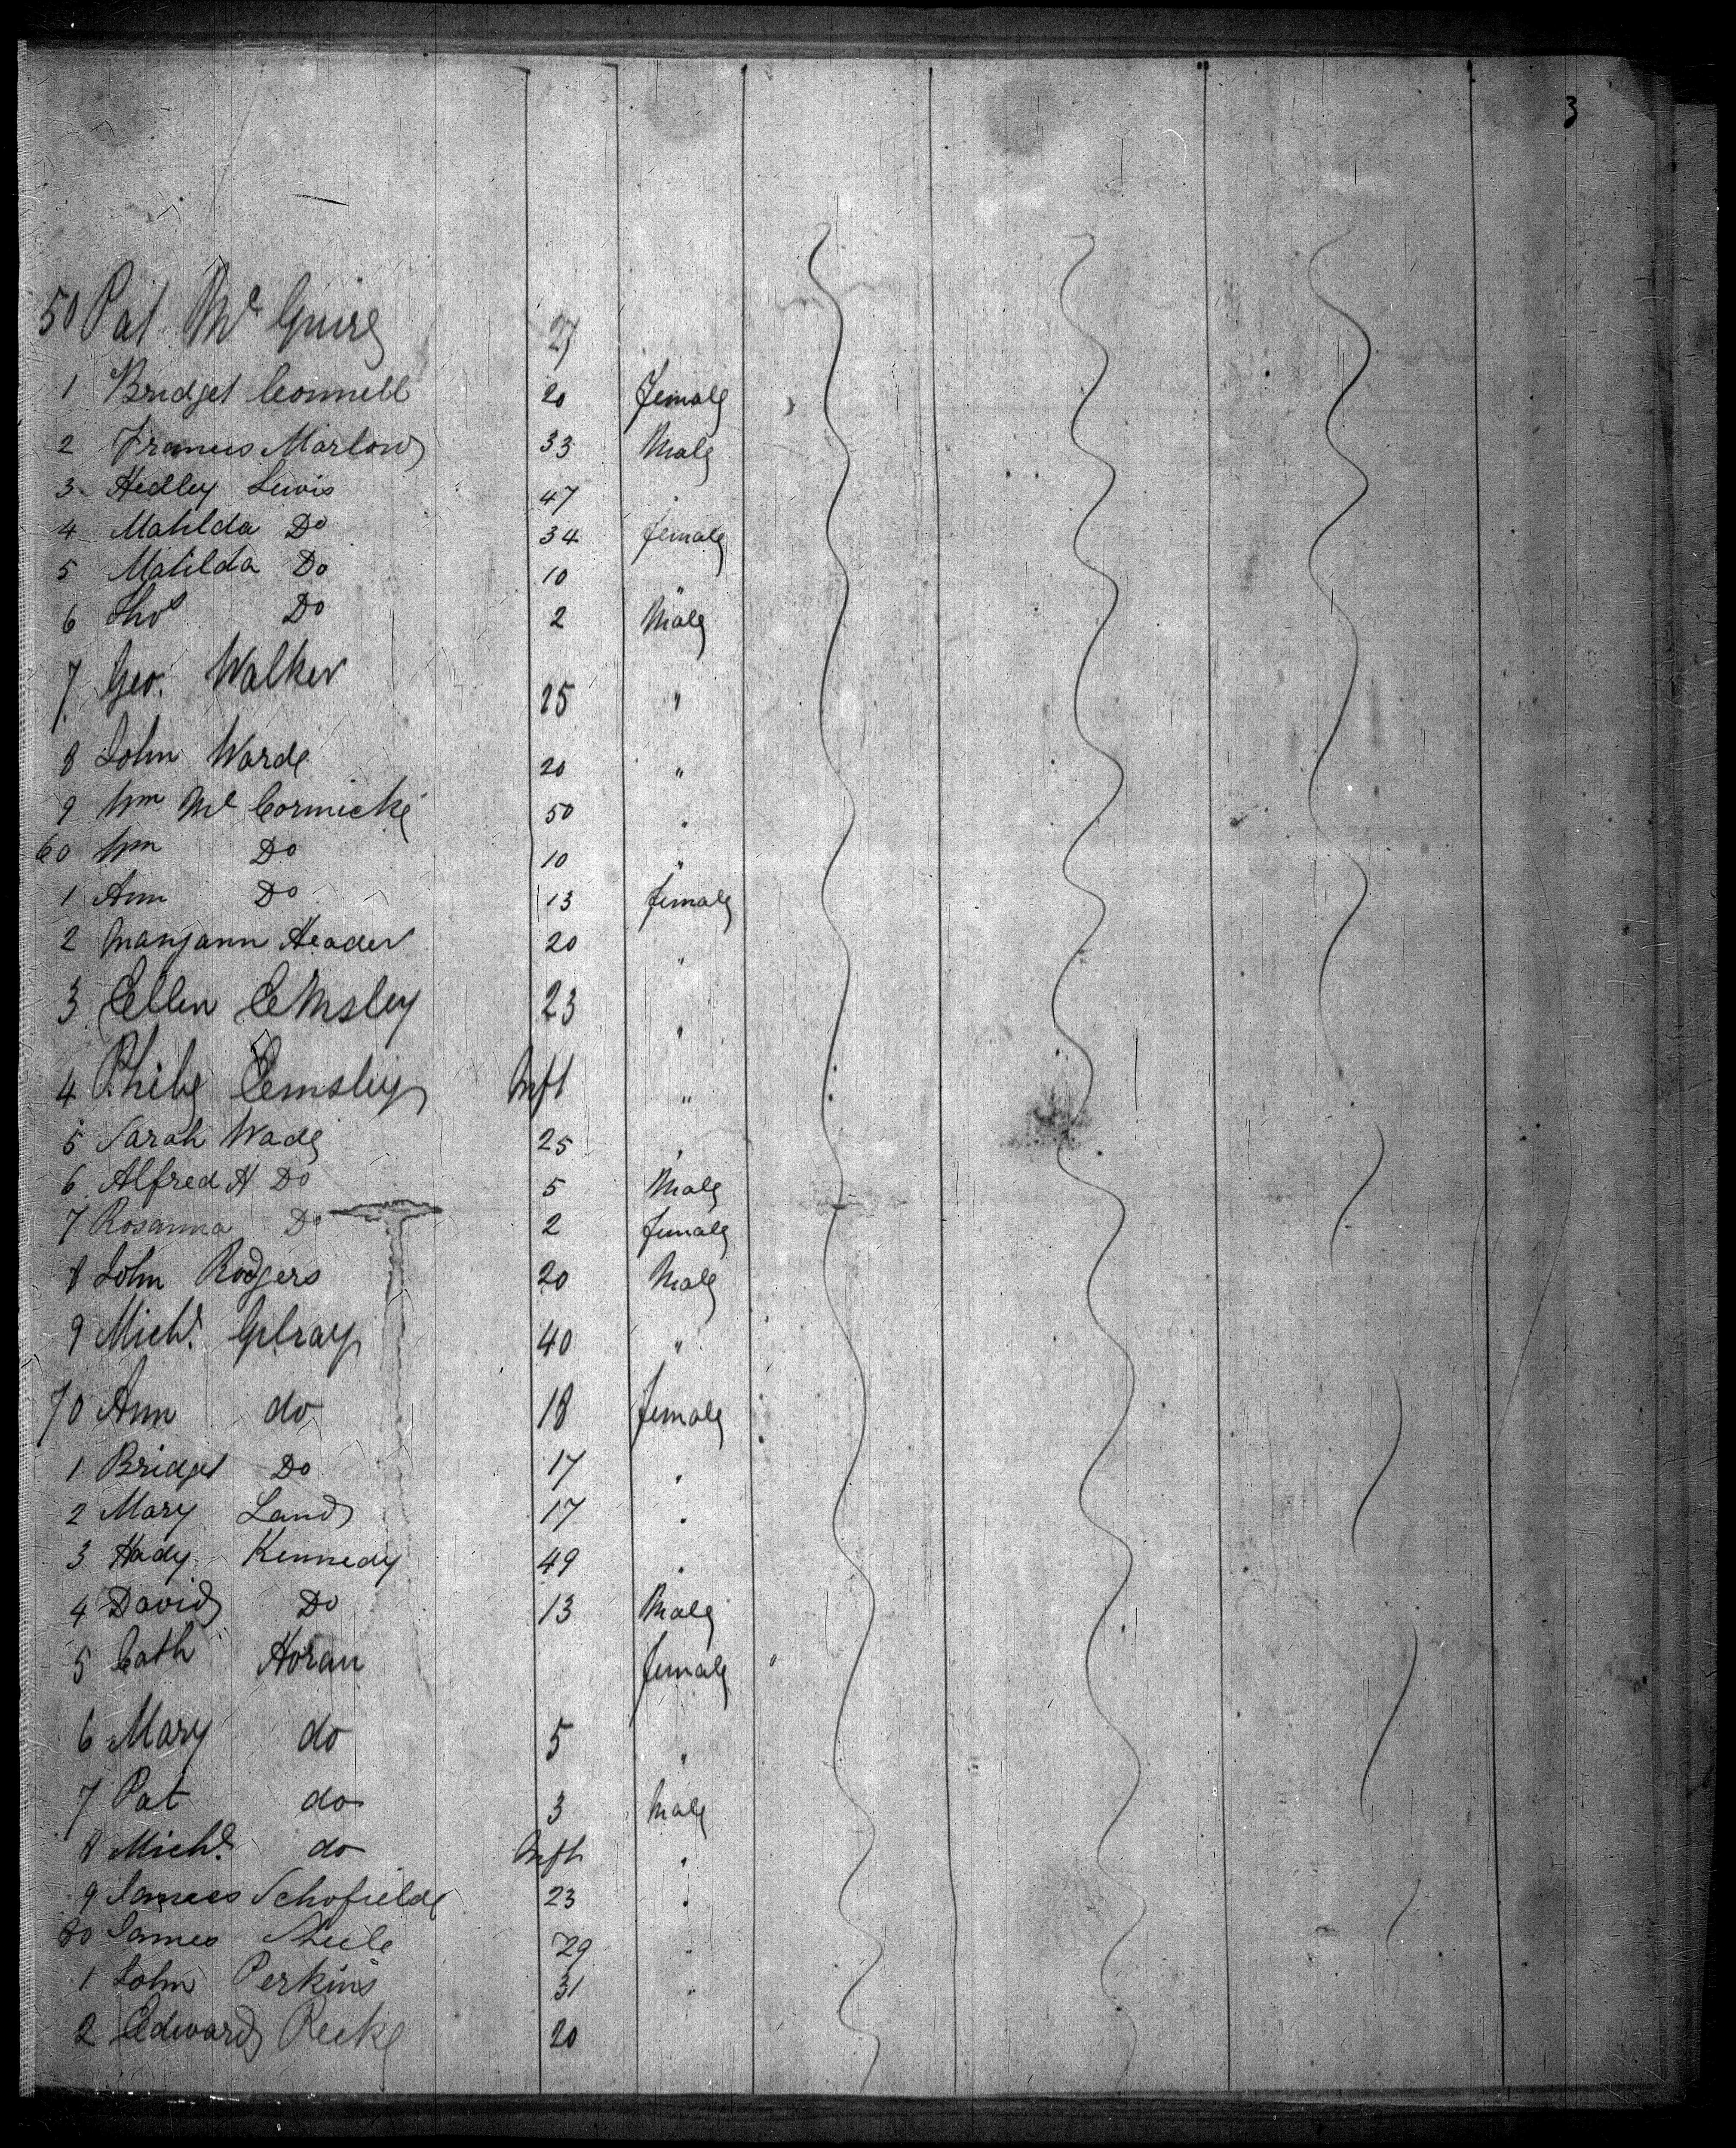 3
50 Pat Mc Guire 27
1 Bridget Connell 20 female
2 Francis Marlow 33 Male
3 Hedley Lewis 47 "
4 Matilda Do 34 female
5 Matilda Do 10 "
6 Thos Do 2 Male
7 Geo. Walker 25 "
8 John Warde 20 "
9 Wm Mc Cormicke 50 "
60 Wm Do 10 "
1 Ann Do 13 female
2 Maryann Header 20 "
3 Ellen Emsley 23 "
4 Phibe Emsley Inft "
5 Sarah Wade 25 "
6 Alfred H Do 5 Male
7 Rosanna Do 2 female
8 John Rodgers 20 Male
9 Michl. Gilray 40 "
70 Ann do 18 female
1 Bridget Do 17 "
2 Mary Land 17 "
3 Hady Kennedy 49 "
4 David Do 13 Male
5 Cath Horan female
6 Mary do 5 "
7 Pat do 3 Male
8 Michl. do Inft "
9 James Schofield 23 "
80 James Steele 29 "
1 John Perkins 31 "
2 Edward Reeke 20